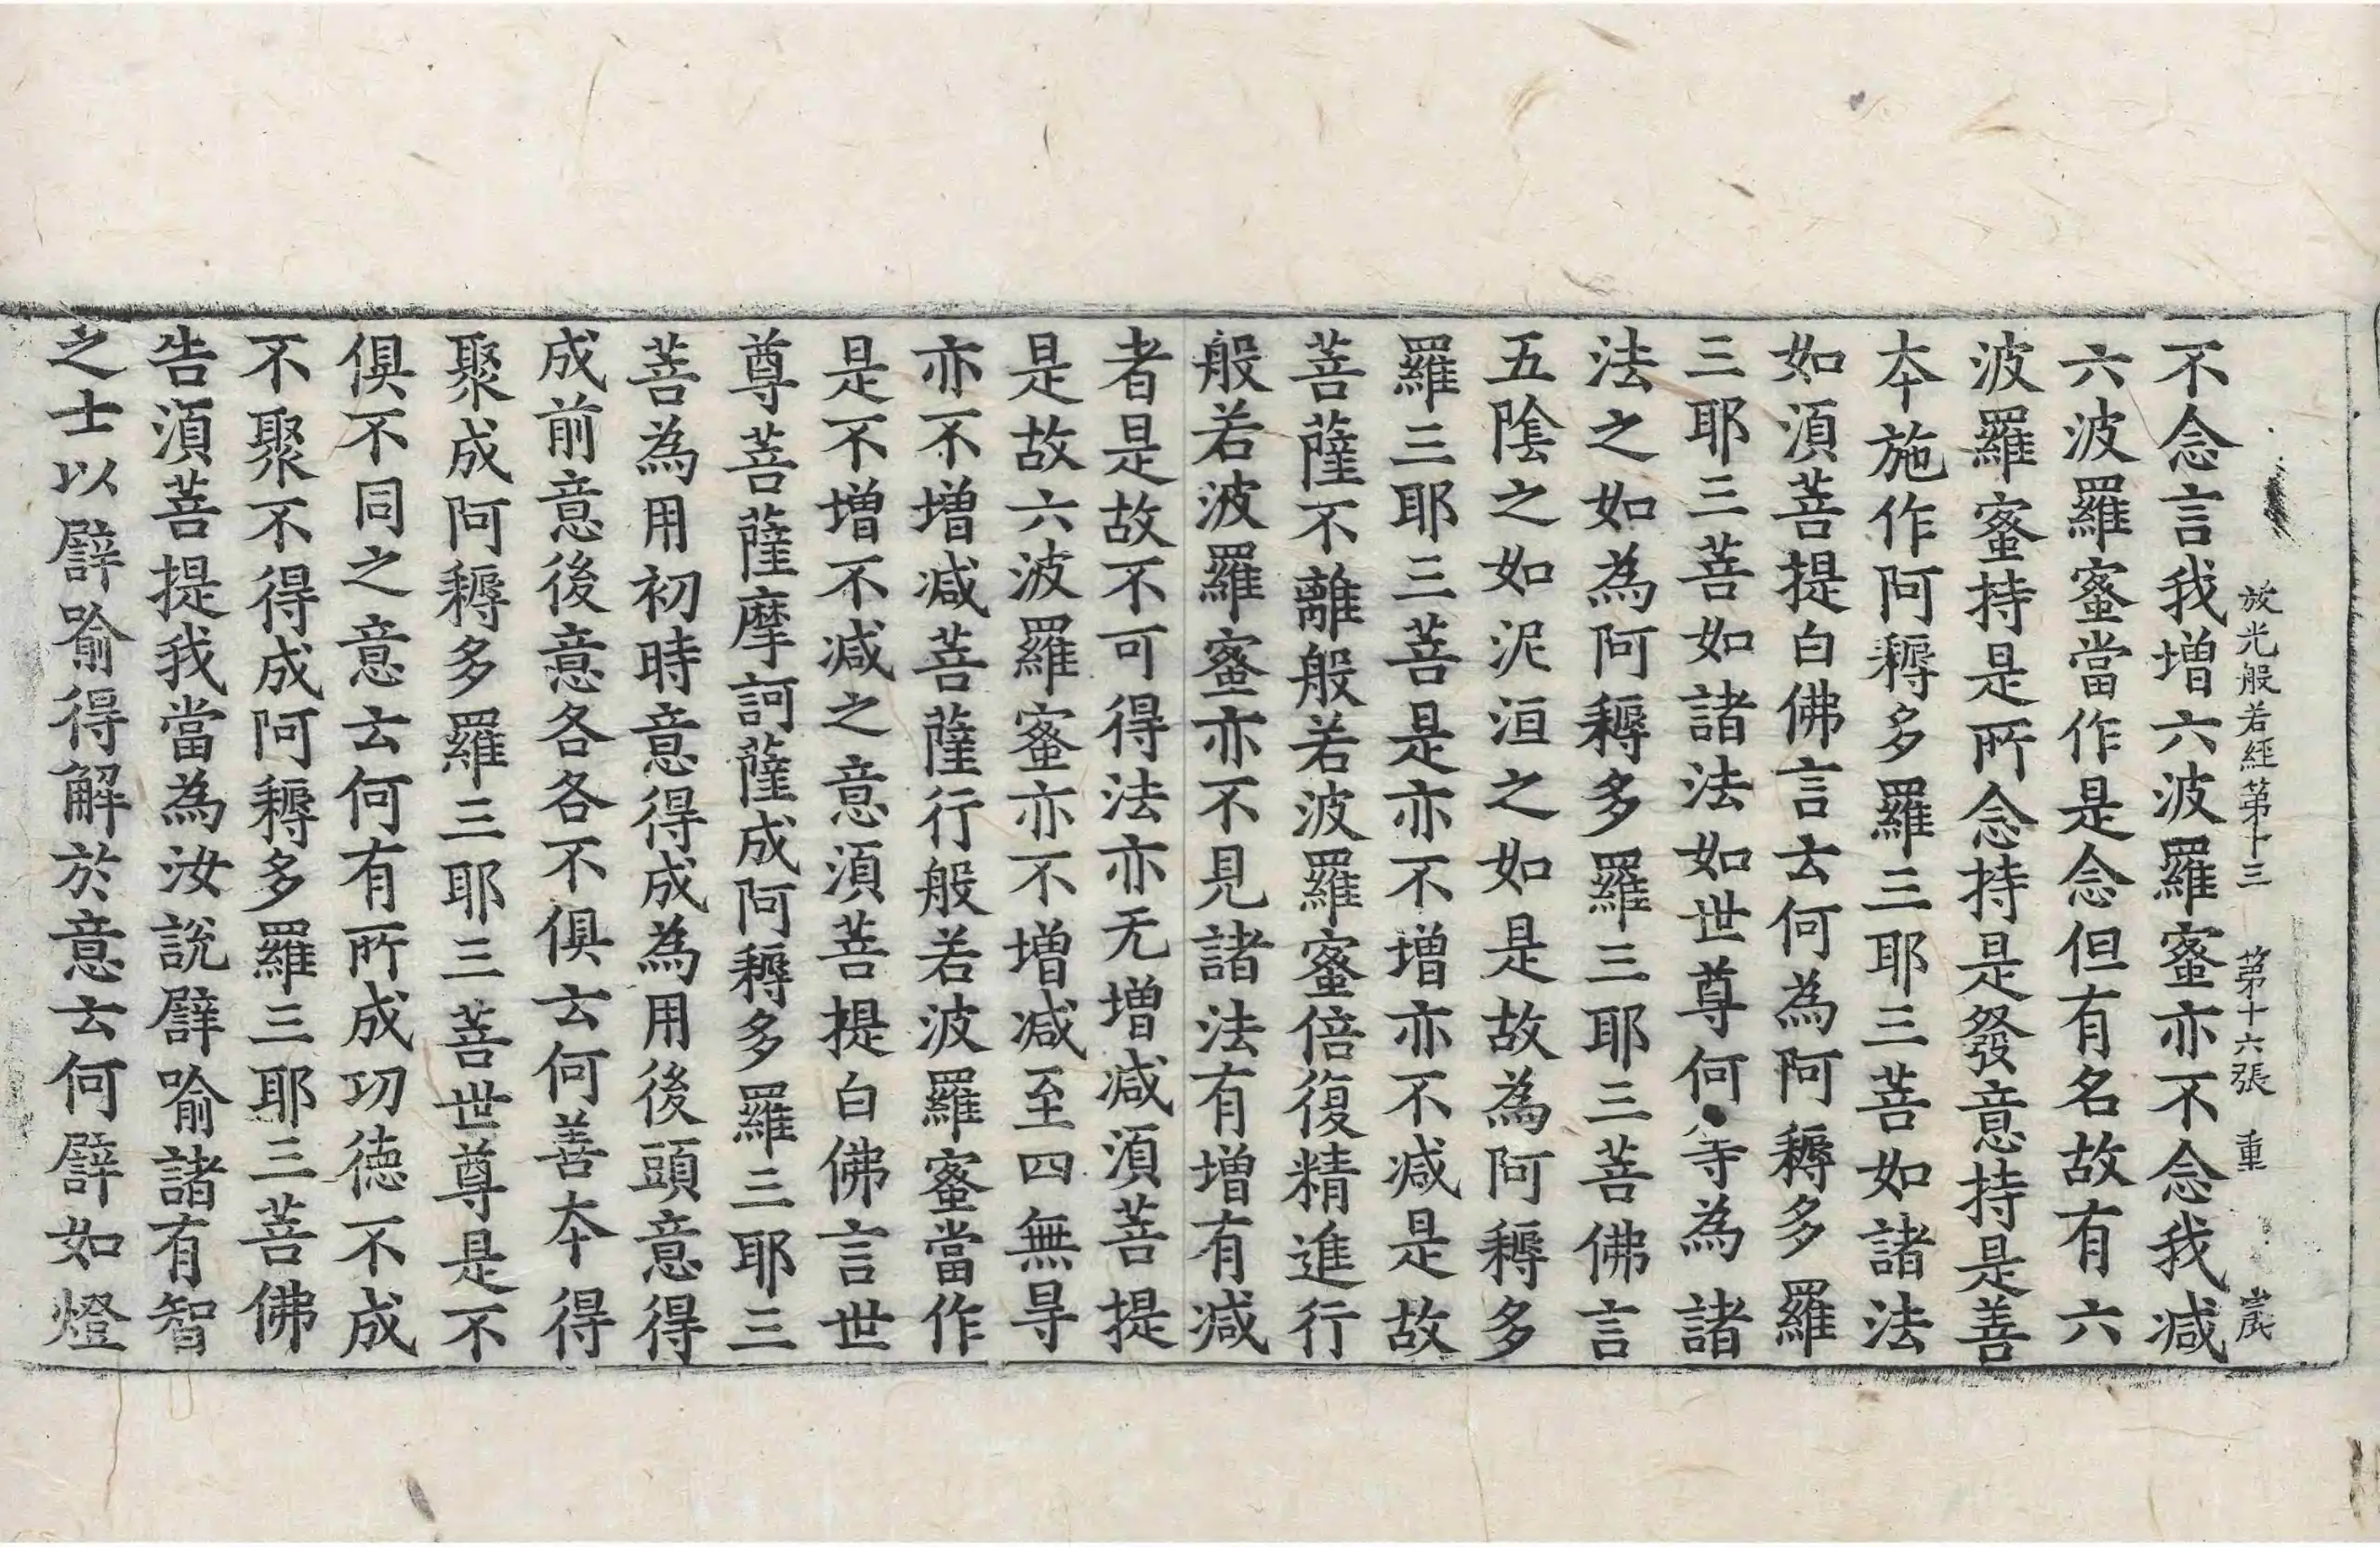 放光般若經第十三 第十六張 重
不念言我增六波羅蜜亦不念我減
六波羅蜜當作是念但有名故有六
波羅蜜持是所念持是發意持是善
本施作阿耨多羅三耶三菩如諸法
如湏菩提白佛言云何為阿耨多羅
三耶三菩如諸法如世尊何等為諸
法之如為阿耨多羅三耶三菩佛言
五陰之如泥洹之如是故為阿耨多
羅三耶三菩是亦不增亦不減是故
菩薩不離般若波羅蜜倍復精進行
般若波羅蜜亦不見諸法有增有減
者是故不可得法亦无增減湏菩提
是故六波羅蜜亦不增減至四無㝵
亦不增減菩薩行般若波羅蜜當作
是不增不減之意湏菩提白佛言世
尊菩薩摩訶薩成阿耨多羅三耶三
菩為用初時意得成為用後頭意得
成前意後意各各不俱云何善本得
聚成阿耨多羅三耶三菩世尊是不
俱不同之意云何有所成功德不成
不聚不得成阿耨多羅三耶三菩佛
告湏菩提我當為汝說譬喻諸有智
之士以譬喻得解於意云何譬如燈